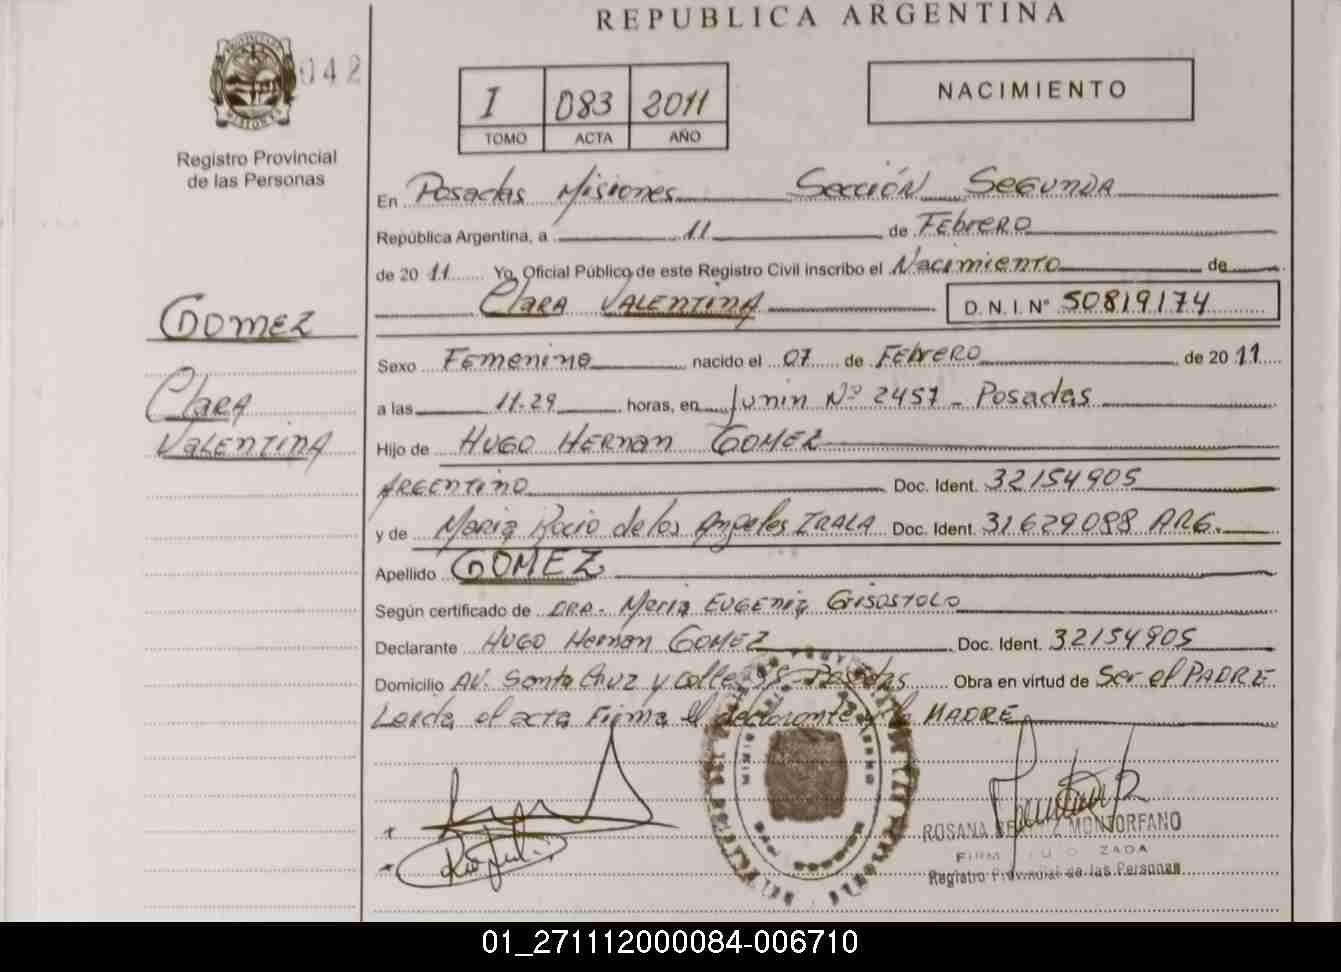 REPUBLICA ARGENTINA
042
I 083 2011
TOMO ACTA AÑO
NACIMIENTO
Registro Provincial
de las Personas
En Posadas Misiones Sección Segunda
República Argentina, a 11 de Febrero
de 2011 Yo, Oficial Público de este Registro Civil inscribo el Nacimiento de
Clara Valentina D. N. I. N° 50819174
GOMEZ
Clara
Valentina
Sexo Femenino nacido el 07 de Febrero de 2011
a las 11.29 horas, en Junin Nº 2457 - Posadas
Hijo de HUGO HERNAN GOMEZ
Argentino Doc. Ident. 32154905
y de Maria Rocio de los Angeles IRALA Doc. Ident. 31629088 ARG.
Apellido GOMEZ
Según certificado de DRA. Maria Eugenia Grisostolo
Declarante Hugo Hernan GOMEZ Doc. Ident. 32154905
Domicilio Av. Santa Cruz y calle Posadas Obra en virtud de Ser el PADRE
Leida el acta Firma el declarante y la MADRE
ROSANA MONTORFANO
Registro Provincial de las Personas
01_271112000084-006710